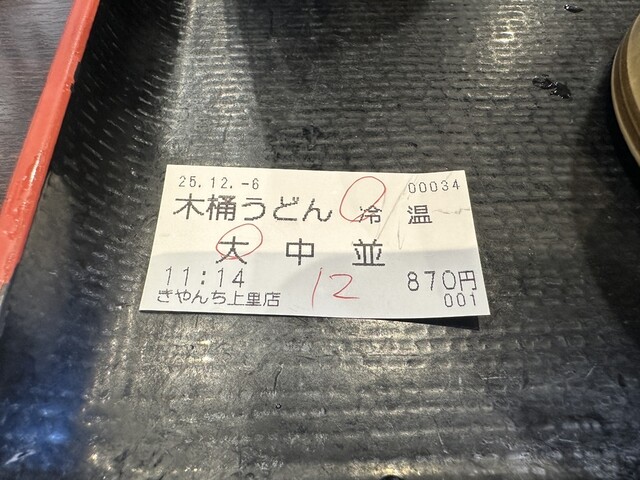 25.12.-6 00034
木桶うどん 冷 温
大 中 並
11:14 12 870円
ぎやんち上里店 001